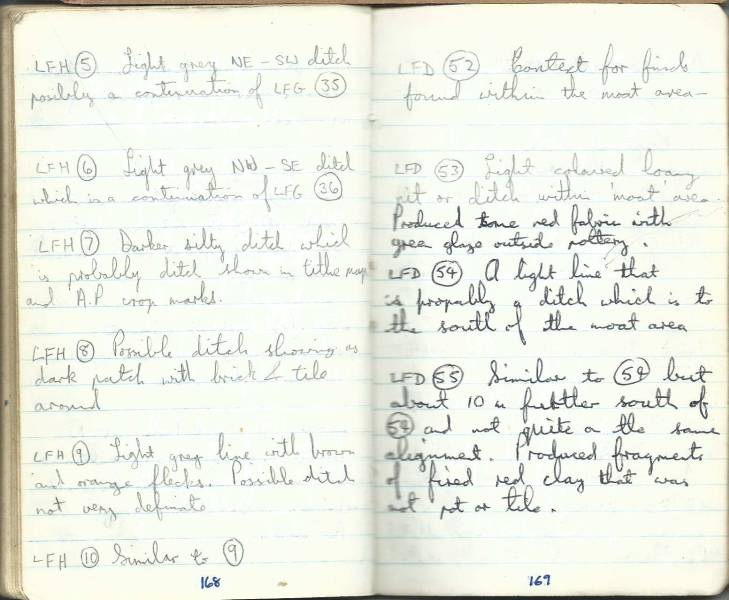 LFH (5) Light grey NE - SW ditch
possibly a continuation of LFG (35)
LFH (6) Light grey NW - SE ditch
which is a continuation of LFG (36)
LFH (7) Darker silty ditch which
is probably ditch shown in tithe map
and A.P crop marks.
LFH (8) Possible ditch showing as
dark patch with brick & tile
around
LFH (9) Light grey line with brown
and orange flecks. Possible ditch
not very definate
LFH (10) Similar to (9)
168
LFD (52) Context for finds
found within the moat area -
LFD (53) Light coloured loamy
pit or ditch within 'moat' area.
Produced some red fabric with
green glaze outside pottery.
LFD (54) A light line that
is propably a ditch which is to
the south of the moat area
LFD (55) Similar to (54) but
about 10 m further south of
(54) and not quite on the same
alignment. Produced fragments
of fired red clay that was
not pot or tile.
169